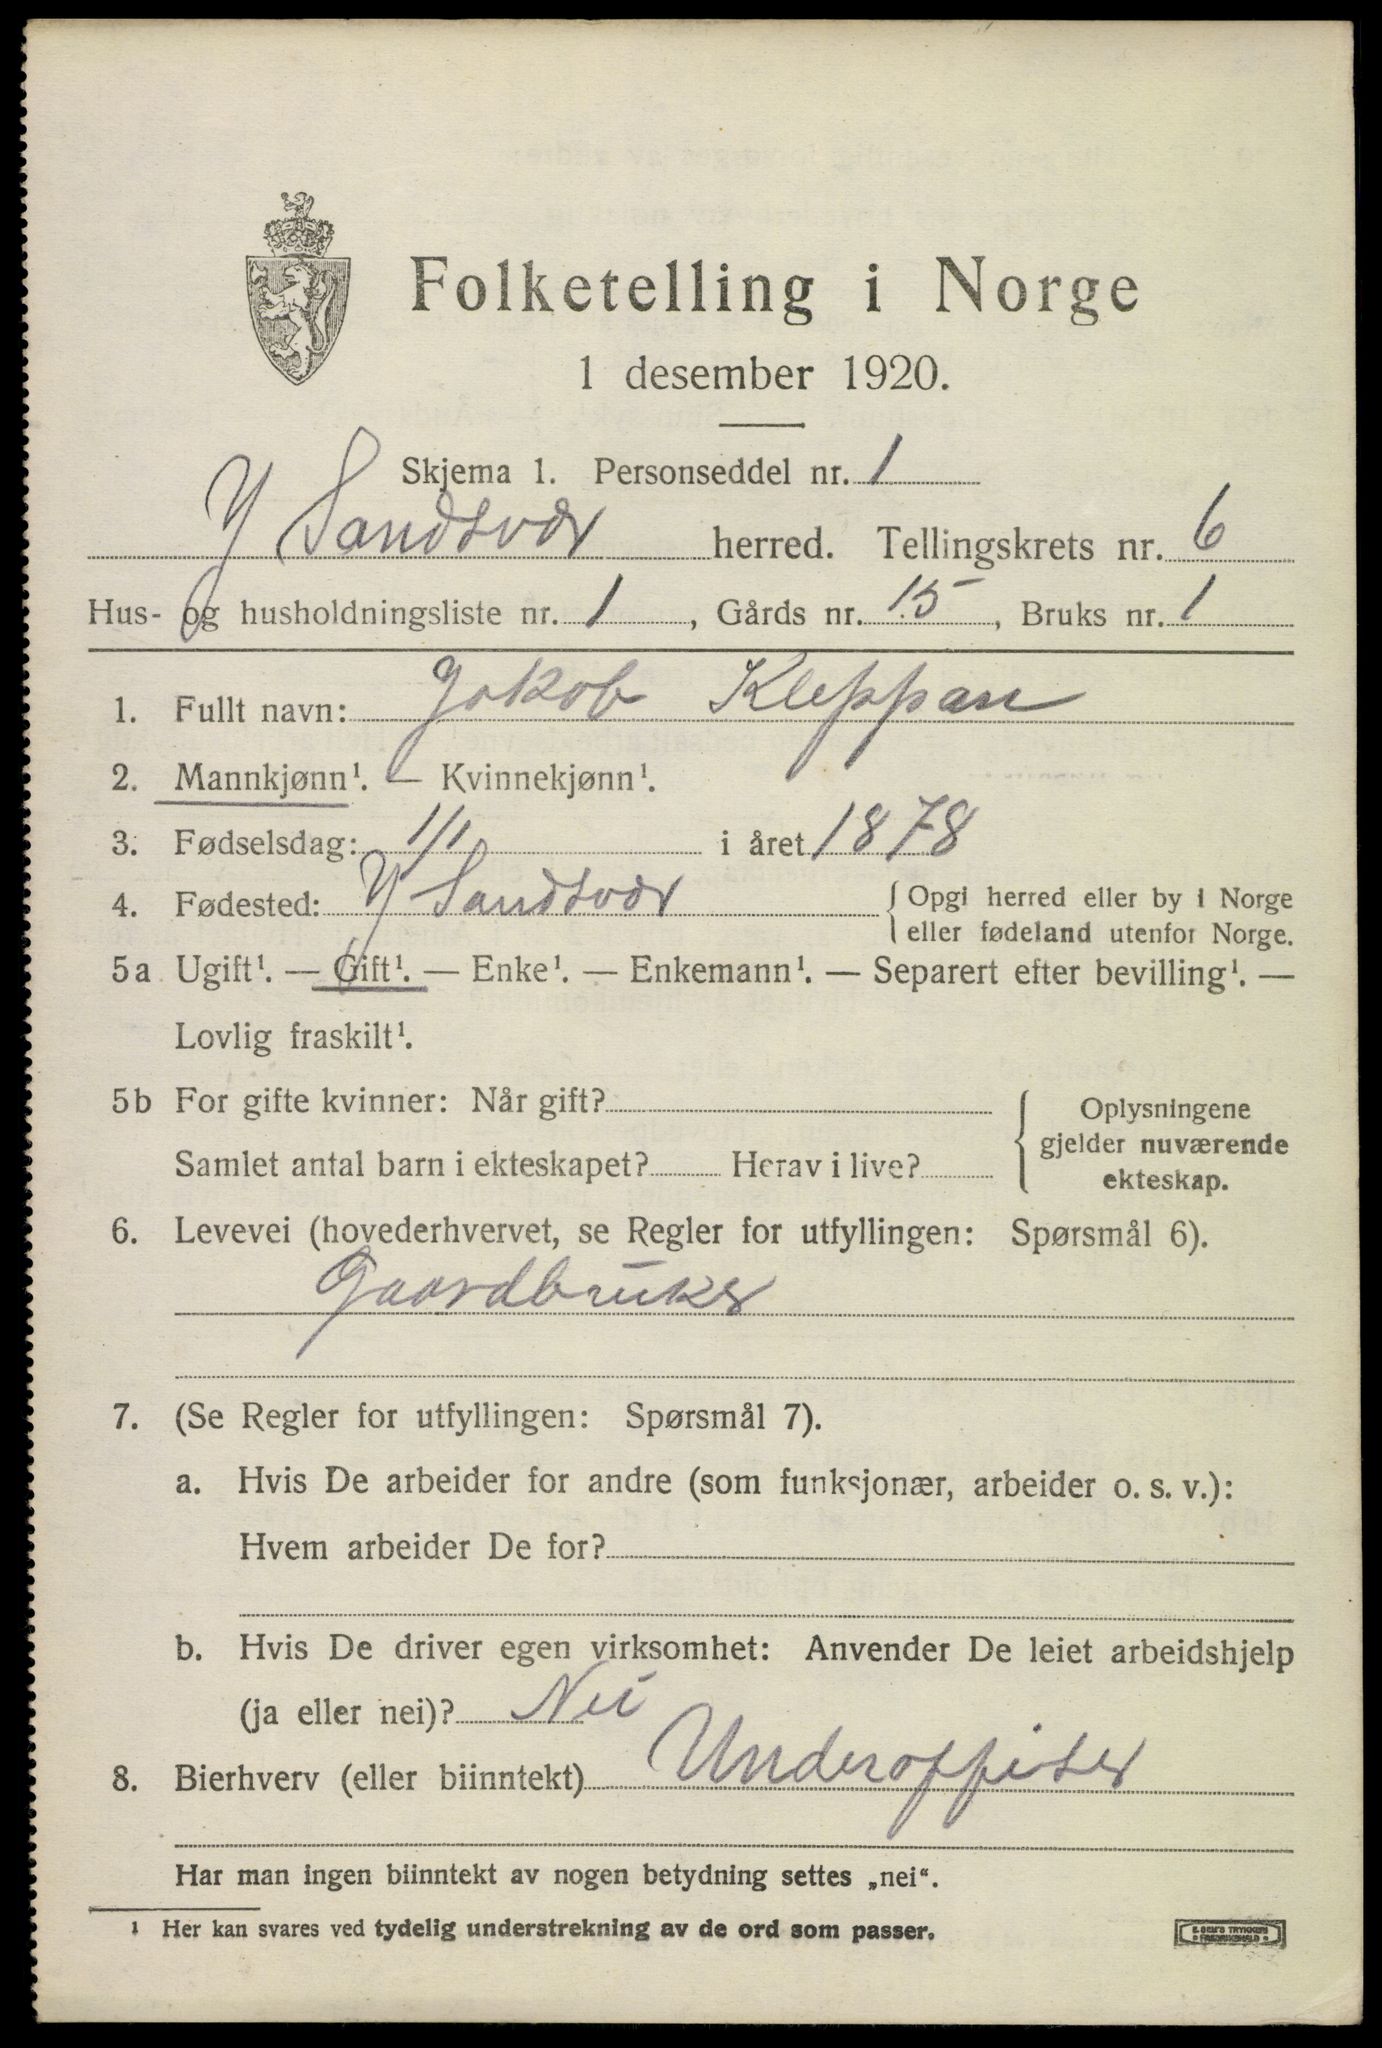 Folketelling i Norge
1 desember 1920.
Skjema 1. Personseddel nr. 1
Y Sandsvær herred. Tellingskrets nr. 6
Hus- og husholdningsliste nr. 1, Gårds nr. 15, Bruks nr. 1
1. Fullt navn: Jakob Kleppan
2. Mannkjønn¹. — Kvinnekjønn¹.
3. Fødselsdag: 1/1 i året 1878
4. Fødested: Y Sandsvær { Opgi herred eller by i Norge
eller fødeland utenfor Norge.
5a Ugift¹. — Gift¹. — Enke¹. — Enkemann¹. — Separert efter bevilling¹. —
Lovlig fraskilt¹.
5b For gifte kvinner: Når gift? { Oplysningene
gjelder nuværende
Samlet antal barn i ekteskapet? Herav i live? ekteskap.
6. Levevei (hovederhvervet, se Regler for utfyllingen: Spørsmål 6).
Gaardbruker
7. (Se Regler for utfyllingen: Spørsmål 7).
a. Hvis De arbeider for andre (som funksjonær, arbeider o. s. v.):
Hvem arbeider De for?
b. Hvis De driver egen virksomhet: Anvender De leiet arbeidshjelp
(ja eller nei)? Nei
8. Bierhverv (eller biinntekt) Underoffiser
Har man ingen biinntekt av nogen betydning settes „nei“.
¹ Her kan svares ved tydelig understrekning av de ord som passer.